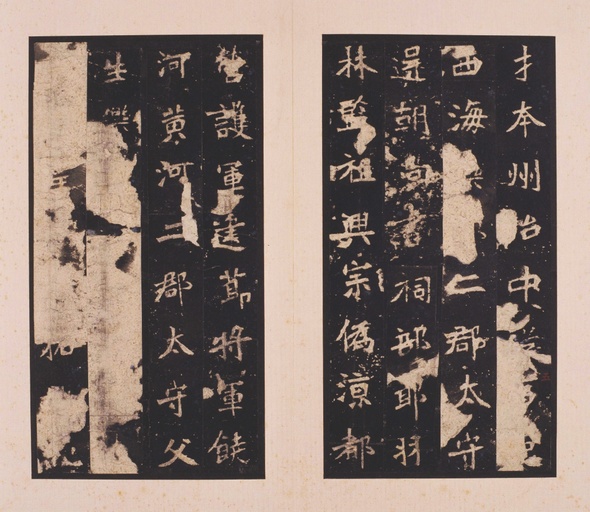 才本州治中
西海二郡太守
還朝尚書祠部郎羽
林監祖興宗偽涼都
營護軍建節將軍饒
河黃河二郡太守父
生樂